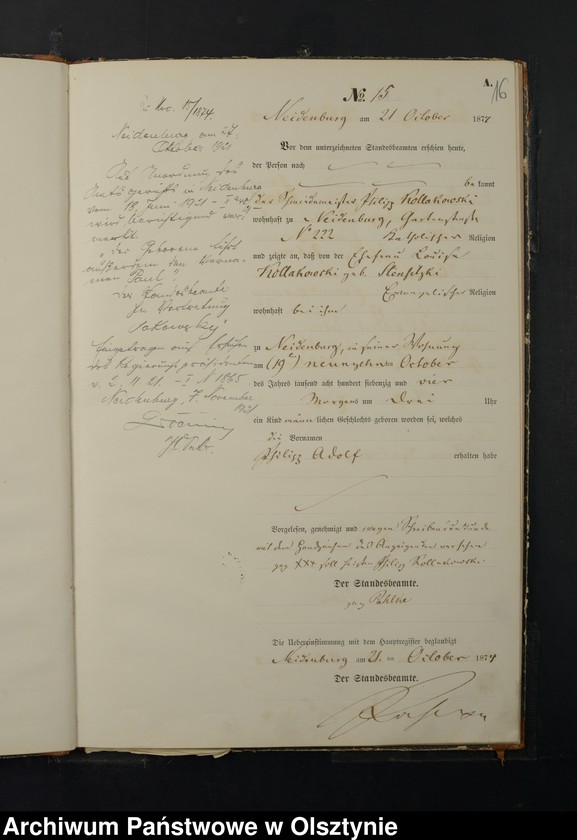 A.
16
Nº 15
Neidenburg am 21 October 1874
Vor dem unterzeichneten Standesbeamten erschien heute,
der Person nach
bekannt
der Schneidermeister Philipp Kollakowski
wohnhaft zu Neidenburg, Gartenstraße
Nº 222 Katholischer Religion
und zeigte an, daß von der Ehefrau Louise
Kollakowski geb.
Evangelischer Religion
wohnhaft bei ihm
zu Neidenburg, in seiner Wohnung
am (19t) neunzehn October
des Jahres tausend acht hundert siebenzig und vier
Morgens um Drei Uhr
ein Kind männlichen Geschlechts geboren worden sei, welches
die Vornamen
Philipp Adolf erhalten habe
Vorgelesen, genehmigt und wegen Schreibensunkunde
mit dem Handzeichen des Anzeigenden versehen
gez XXX soll heißen Philipp Kollakowski
Der Standesbeamte.
gez
Die Uebereinstimmung mit dem Hauptregister beglaubigt
Neidenburg am 21 ten October 1874
Der Standesbeamte.
Zu No. 15/1874.
Neidenburg am 27.
Oktober 1921
Auf Anordnung des
Amtsgerichts in Neidenburg
vom 18. Juni 1921
wird berichtigend
"der Geborene heißt
außerdem den Vorna-
men Paul".
Der Standesbeamte
In Vertretung
Eingetragen auf
des Regierungspräsidenten
Neidenburg, 7. November
1921
Archiwum Państwowe w Olsztynie